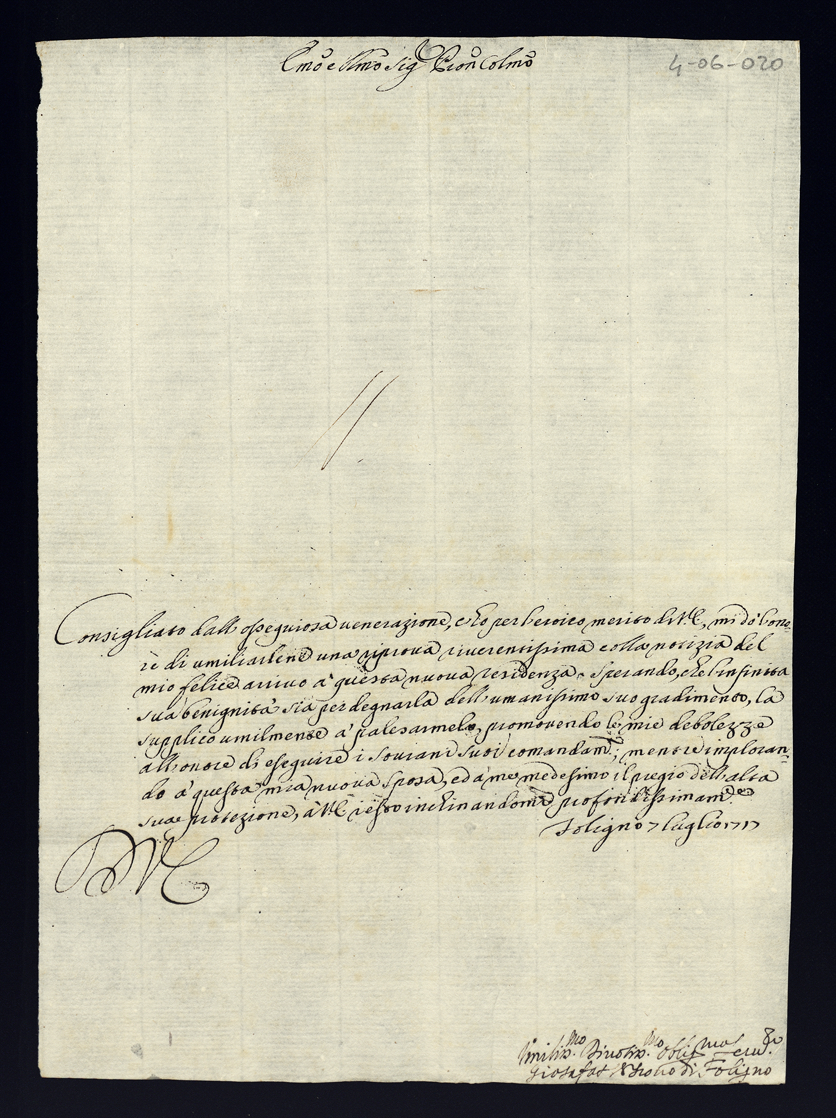 Emõ e Rmõ Sig.r Pron Colmõ
4-06-020
Consigliato dall'ossequiosa venerazione, che hò per heroico merito di V.E., mi dò l'ono-
re di umiliarlene una riprova riverentissima colla notizia del
mio felice arrivo à questa nuova residenza. Sperando, che l'infinita
sua benignità sia per degnarla dell'umanissimo suo gradimento, la
supplico umilmente à palesarmelo, promovendo le mie debolezze
all'onore di eseguire i sovrani suoi comandam.ti; mentre imploran-
do à questa mia nuova Sposa, ed à me medesimo il pregio dell'alta
sua protezione, à V.E. resto inchinandomi profondissimam.te
Foligno 7 luglio 1717
D V E
Umiliss.mo Divotiss.mo Obblig.mo Serv.re
Giosafat Vescovo di Foligno